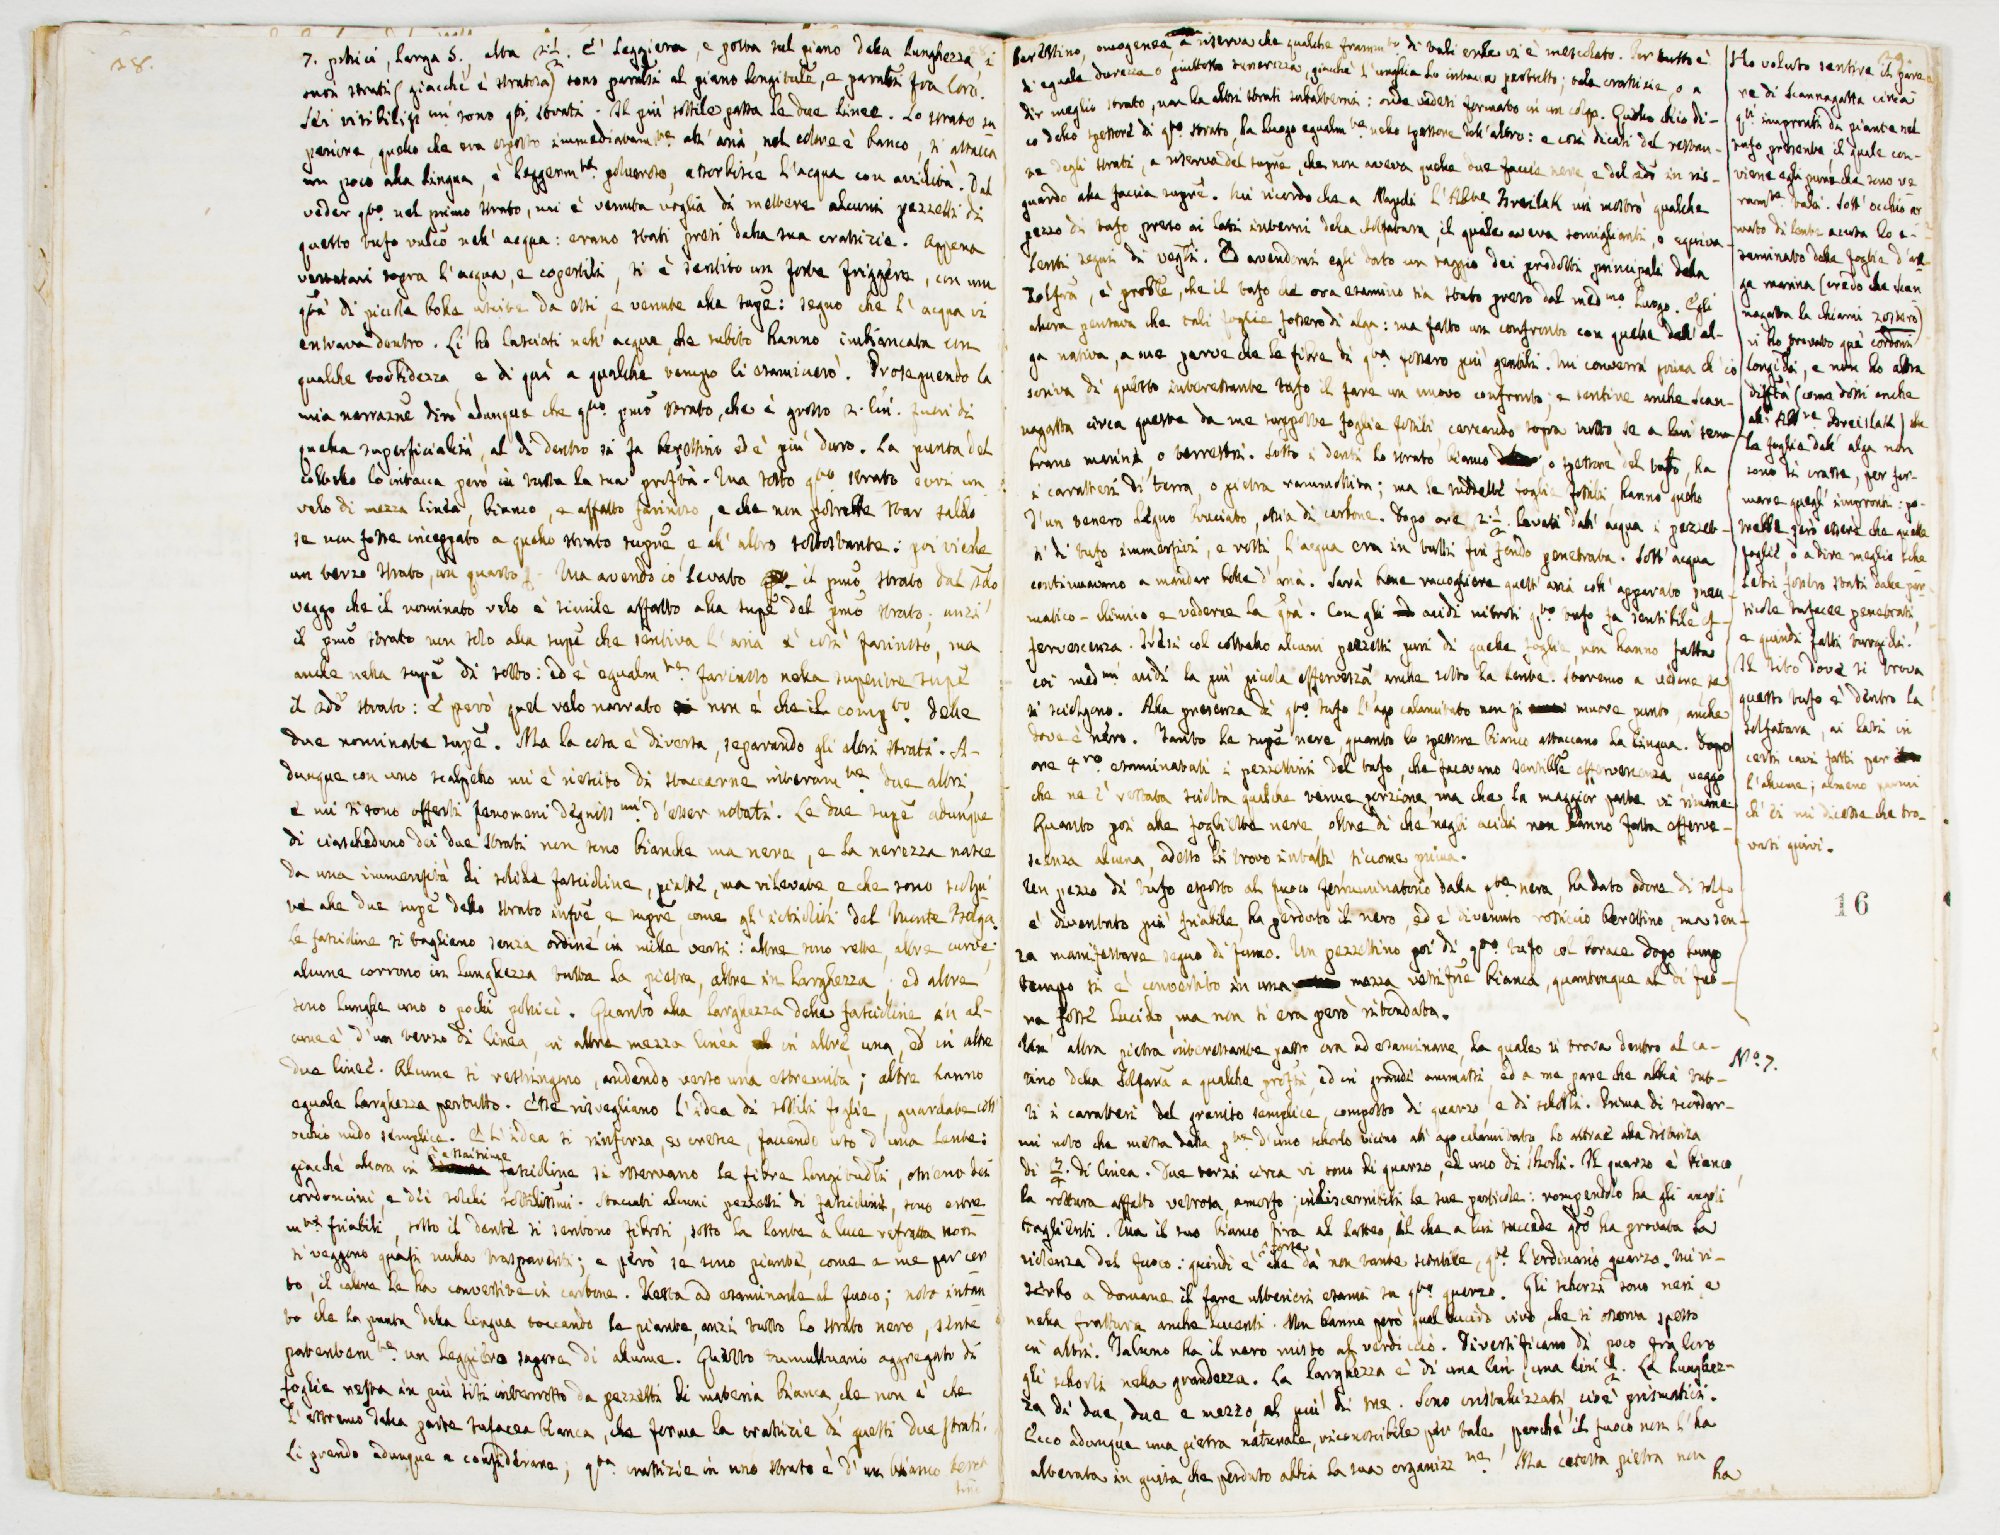 28.
7. pollici, larga 5., alta 2 1/2. E' leggiera, e posta sul piano della lunghezza i
suoi strati (giacchè è stratosa) sono paralli al piano longitudle, e paralli fra loro.
Sei visibilissmi sono qti strati. Il più sottile passa le due linee. Lo strato su
periore, quello che era esposto immediatamte all' aria, nel colore è bianco, si attacca
un poco alla lingua, è leggermte polveroso, assorbisce l'acqua con avidità. Dal
veder qto nel primo strato, mi è venuta voglia di mettere alcuni pezzetti di
questo tufo vulco nell' acqua: erano stati presi dalla sua crassizie. Appena
versatavi sopra l'acqua, e copertili, si è sentito un forte friggere, con una
qtà di piccole bolle uscite da essi, e venute alla supe: segno che l' acqua vi
entrava dentro. Li ho lasciati nell' acqua, che subito hanno imbiancata con
qualche torbidezza e di quà a qualche tempo li esaminerò. Proseguendo la
mia narrazne dirò adunque che qto pmo strato, che è grosso 2. lin. fuori di
quella superficialità, al di dentro si fa berettino ed è più duro. La punta del
coltello lo intacca però in tutta la sua profdtà. Ma sotto qto strato evvi un
velo di mezza linea, bianco, e affatto farinoso, e che non potrebbe star saldo
se non fosse inceppato a quello strato supre, e all' altro sottostante: poi viene
un terzo strato, un quarto &. Ma avendo io levato il pmo strato dal 2do
veggo che il nominato velo è simile affatto alla supe del pmo strato; anzi
il pmo strato non solo alla supe che sentiva l' aria è così farinoso, ma
anche nella supe di sotto: ed è egualmte farinoso nella superiore supe
il 2do strato: E però quel velo narrato non è che il compto delle
due nominate supe. Ma la cosa è diversa, separando gli altri strati. A-
dunque con uno scalpello mi è riescito di staccarne interamte due altri,
e mi si sono offerti fenomeni degnissmi d'esser notati. Le due supe adunque
di ciascheduno dei due strati non sono bianche ma nere, e la nerezza nasce
da una immensità di solide fascioline, piatte, ma rilevate e che sono scolpi
te alle due supe dello strato infre e supre, come gl' ictioliti del Monte Bolga.
Le fascioline si tagliano senza ordine in mille versi: altre sono rette, altre curve;
alcune corrono in lunghezza tutta la pietra, altre in larghezza: ed altre
sono lunghe uno o pochi pollici. Quanto alla larghezza delle fascioline in al-
cune è d'un terzo di linea, in altre mezza linea in altre una, ed in altre
due linee. Alcune si restringono, andando verso una estremità; altre hanno
eguale larghezza pertutto. Esse risvegliano l'idea di sottili foglie, guardate coll'
occhio nudo semplice. E l'idea si rinforza, e cresce, facendo uso d'una lente:
giacchè allora in attaissime fascioline si osservano le fibre longitudli, ossieno dei
cordoncini, e dei solchi sottilissmi. Staccati alcuni pezzetti di fascioline, sono estre
mte friabili, sotto il dente si sentono fibrosi, sotto la lente a luce refratta non
si veggono quasi nulla trasparenti; e però se sono piante, come a me par cer
to, il calore le ha convertite in carbone. Resta ad esaminarle al fuoco; noto intan
to che la punta della lingua toccando le piante, anzi tutto lo strato nero, sente
patentemte un leggiero sapore di alume. Questo tumultuario aggregato di
foglie resta in più siti interrotto da pezzetti di materia bianca, che non è che
l'estremo della parte tufacea bianca, che forma la crassizie di questi due strati.
Li prendo adunque a considerare; qta crassizie in uno strato è di un bianco beret
tino
berettino, omogenea, a riserva che qualche frammto di vali entro vi è mescolato. Per tutto è
di eguale durezza o piuttosto tenerezza, giacchè l'unghia lo intacca pertutto; tale crassizie, o a
dir meglio strato, non ha altri strati subalterni: onde vedesi formato in un colpo. Quello ch'io di-
co dello spessore di qto strato, ha luogo egualmte nello spessore dell'altro: e così dicasi del restan-
te degli strati, a riserva del supre, che non aveva quelle due faccie nere, e del 2do in ris-
guardo alla faccia supre. Mi ricordo che a Napoli l'Abbe Breislak mi mostrò qualche
pezzo di tufo preso ai lati interni della Solfatara, il quale aveva somiglianti, o equiva-
lenti segni di vegli. Ed avendomi egli dato un saggio dei prodotti principali della
Solfara, è proble, che il tufo che ora esamino sia stato preso dal medmo luogo. Egli
allora pensava che tali foglie fossero di alga: ma fatto un confronto con quelle dell' al-
ga nativa, a me parve che le fibre di qta fossero più gentili. Mi converrà prima ch' io
scriva di questo interessante tufo il fare un nuovo confronto; e sentire anche Scan-
nagatta circa queste da me supposte foglie fossili, cercando sopra tutto se a lui sem
brano marini, o terrestri. Sotto i denti lo strato bianco, o spessore del tufo, ha
i caratteri di terra, o pietra rammollita; ma le suddette foglie fossili hanno quello
d'un tenero legno bruciato, ossia di carbone. Dopo ore 2 1/2. levati dall' acqua i pezzet-
ti di tufo immersivi, e rotti, l'acqua era in tutti fin fondo penetrata. Sott' acqua
continuavano a mandar bolle d'aria. Sarà bene raccogliere quest' aria coll' apparato pneu-
matico-chimico e vederne la qtà. Con gli acidi nitrosi qto tufo fa sentibile ef-
fervescenza. Trtti col coltello alcuni pezzetti puri di quelle foglie, non hanno fatta
coi medmi acidi la più picola effervescza anche sotto la lente. Staremo a vedere se
si sciolgono. Alla presenza di qto tufo l'ago calamitato non si muove punto, anche
dove è nero. Tanto le supe nere, quanto lo spessore bianco attaccano la lingua. Dopo
ore 4ro esaminati i pezzettini del tufo, che facevano sentibile effervescenza veggo
che ne è restata sciolta qualche tenue porzione, ma che la maggior parte vi rimane.
Quanto poi alle fogliette nere, oltre di che negli acidi non hanno fatta efferve-
scenza alcuna, adesso li trovo intatti siccome prima.
Un pezzo di tufo esposto al fuoco ferruminatorio dalla pte nera, ha dato odore di solfo
è diventato più friabile, ha perduto il nero, ed è divenuto rossiccio berettino, ma sen-
za manifestare segno di fumo. Un pezzettino poi di qto tufo col borace dopo lungo
tempo si è convertito in una massa vetrifne bianca, quantunque al di fuo-
ra fosse lucido, ma non si era però ritondata.
Un' altra pietra interessante passo ora ad esaminare, la quale si trova dentro al ca-
tino della Solfara a qualche profdtà, ed in grandi ammassi, ed a me pare che abbia tut-
ti i caratteri del granito semplice, composto di quarzo e di schorli. Prima di scordar-
mi noto che messa dalla pte d'uno schorlo vicino all' ago calamitato lo attrae alla distanza
di 3/4. di linea. Due terzi circa vi sono di quarzo, ed uno di schorli. Il quarzo è bianco,
la rottura affatto vetrosa, amorfo; indiscernibili le sue particole: rompendolo ha gli angoli
taglienti. Ma il suo bianco tira al latteo, il che a lui succede qdo ha provata la
violenza del fuoco: quindi è forse che dà non tante scintille, qte l'ordinario quarzo. Mi ri-
serbo a domane il fare ulteriori esami su qto quarzo. Gli schorli sono neri, e
nella frattura anche lucenti. Non hanno però quel lucido vivo, che si osserva spesso
in altri. Taluno ha il nero misto al verdiccio. Diversificano di poco fra loro
gli schorli nella grandezza. La larghezza è di una lin, una lin 1/2. La lunghez-
za di due, due e mezzo, al più di tre. Sono cristallizzati, cioè prismatici.
Ecco adunque una pietra naturale, riconoscibile per tale, perchè il fuoco non l'ha
alterata in guisa, che perduto abbia la sua organizzne. Ma cotesta pietra non
ha
29.
Ho voluto sentire il pare-
re di Scannagatta circa
qti impronti di piante nel
tufo presente, il quale con-
viene egli pure che sono ve
ramte tali. Sott' occhio ar
mato di lente acuta ho e-
saminato delle foglie d'al
ga marina (credo che Scan
nagatta la chiami zostera)
vi ho trovato quà cordoni
longidli, e non ho altra
diffltà (come dissi anche
all' Abbe Breislak) che
la foglia dell' alga non
sono sì crasse, per for-
mare quegl' impronti: po-
trebbe però essere che quelle
foglie, o a dire meglio i che
letri fossero stati dalle par
ticole tufacee penetrati,
e quindi fatti turgidi.
Il sito dove si trova
questo tufo è dentro la
Solfatara, ai lati in
certi cavi fatti per
l'alume; almeno parmi
ch' Ei mi dicesse che tro-
vasi quivi.
16
No. 7.